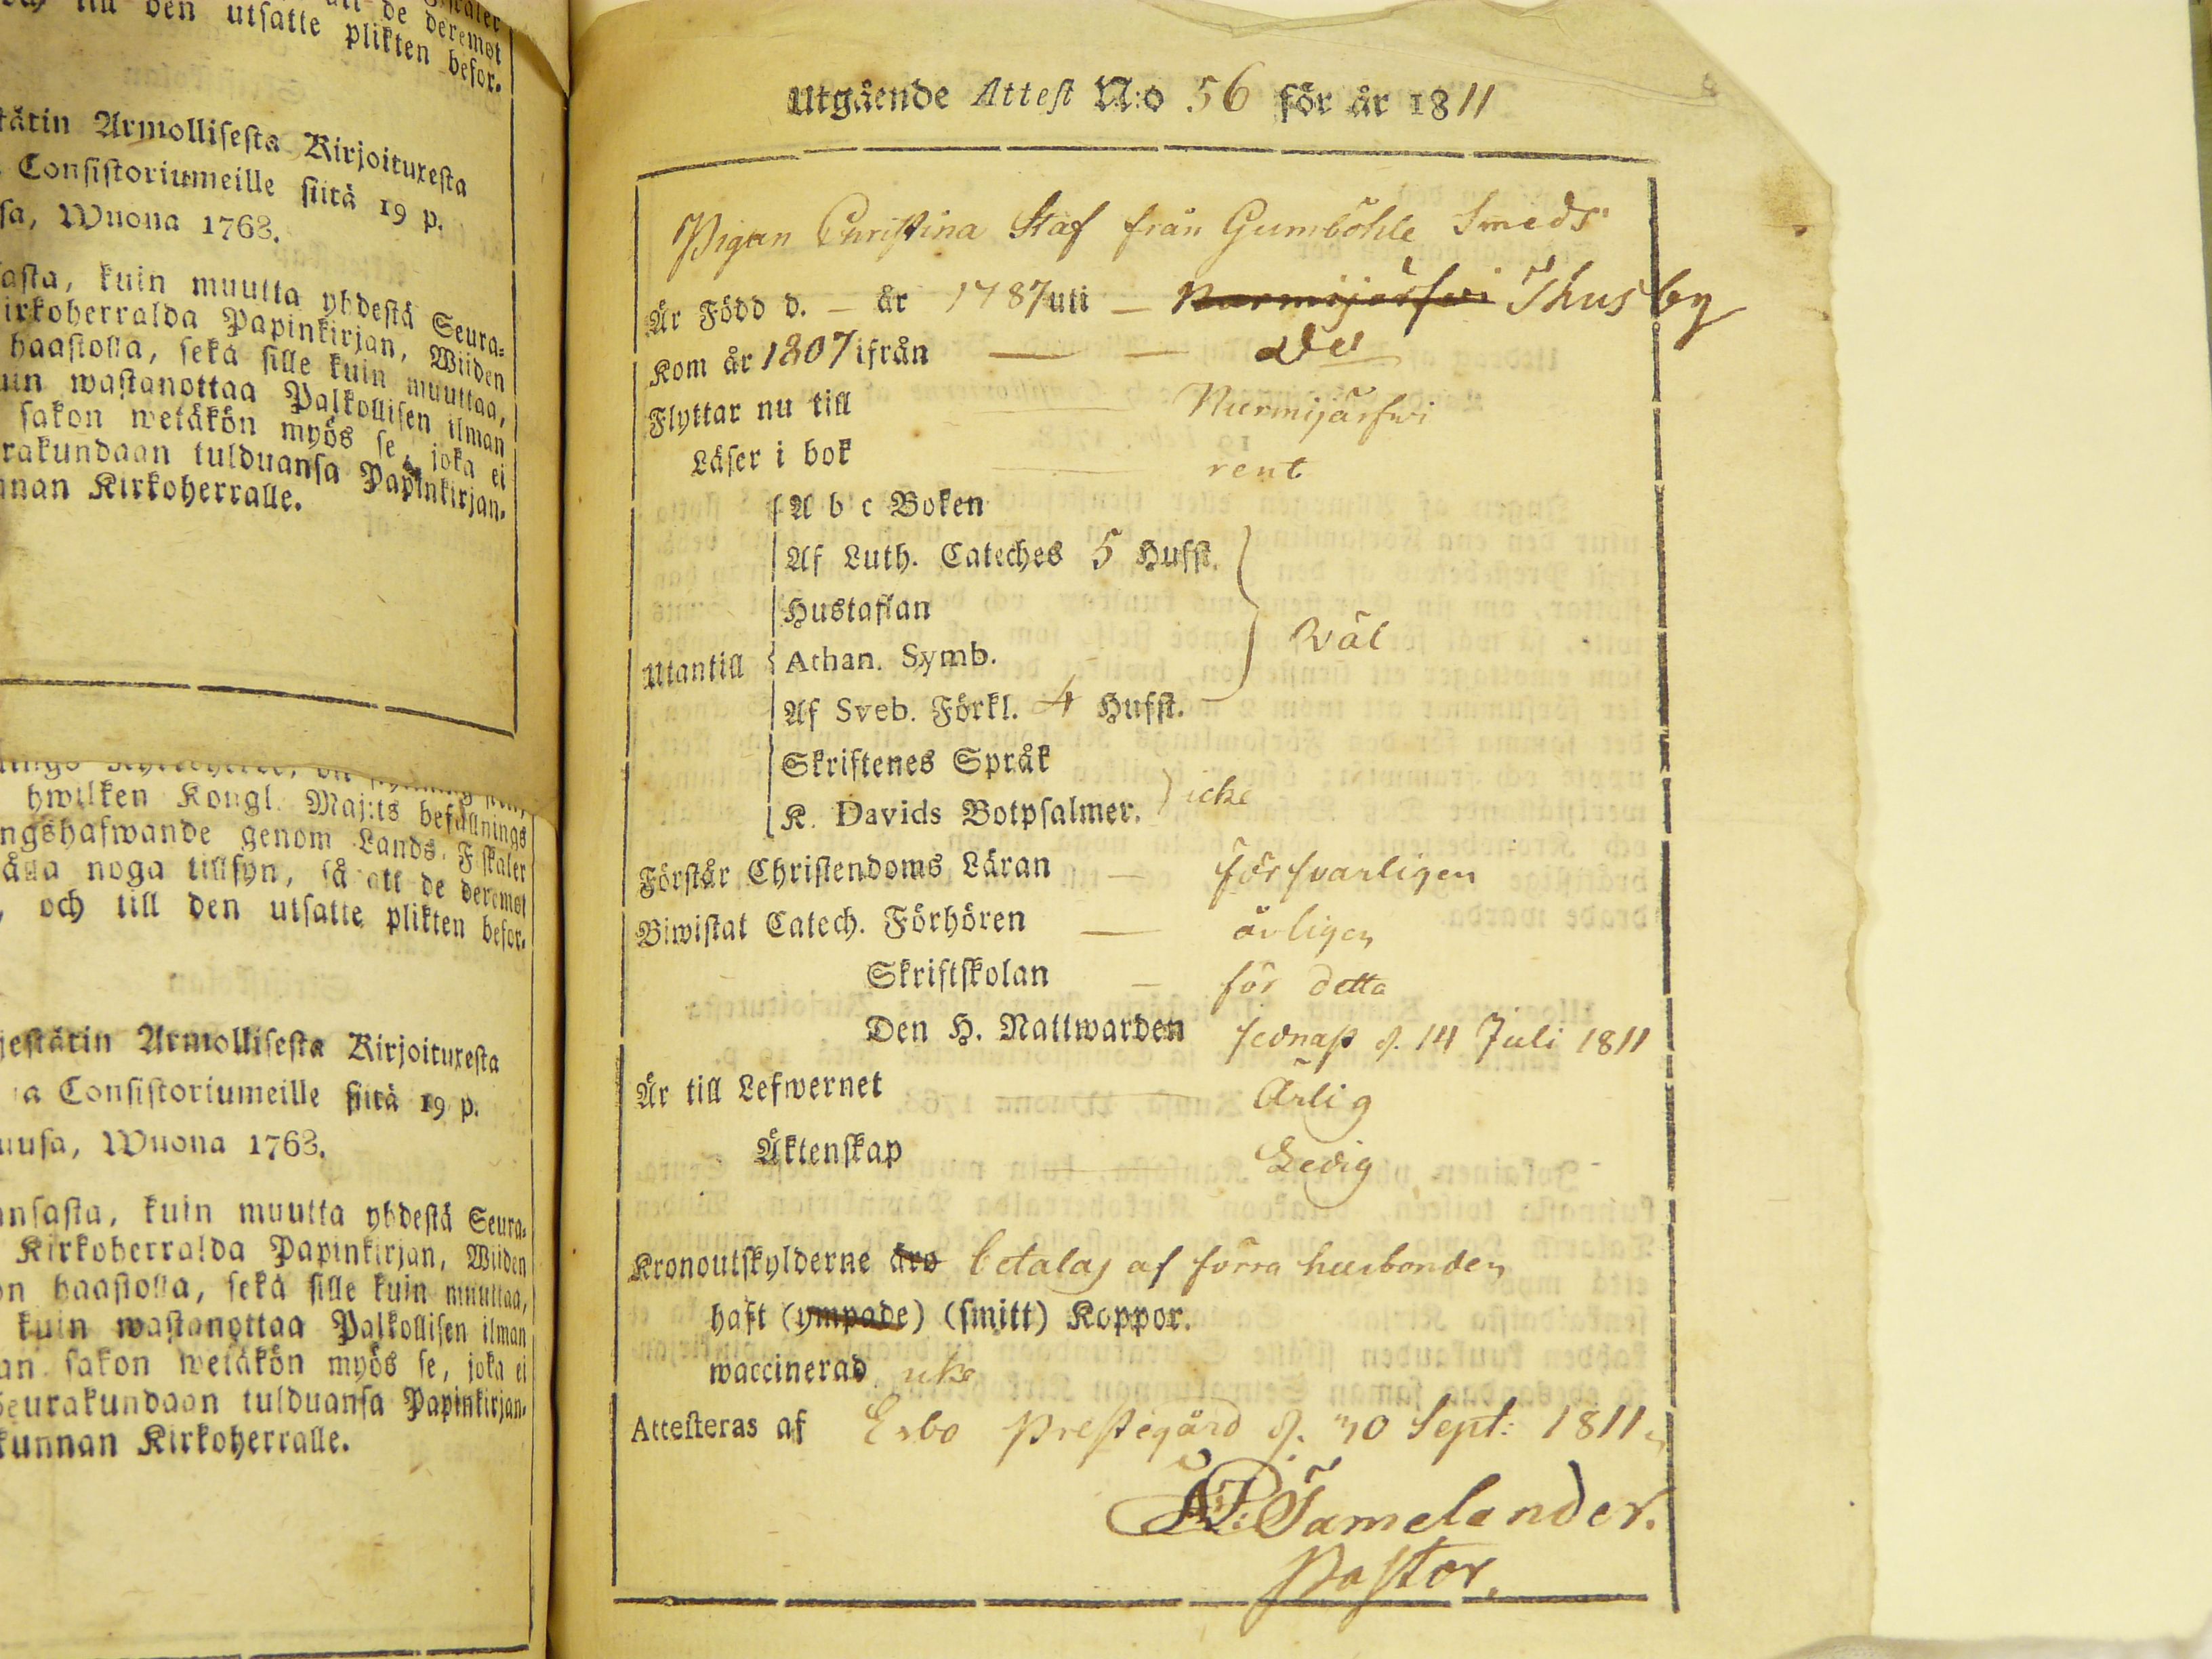 den utsatte plikten befor.
de deremot
tätin Armollisesta Kirjoituxesta
Consistoriumeille siitä 19 p.
sa, Wuona 1763.
asta, kuin muutta yhdestä Seura-
irkoherralda Papinkirjan, Wiiden
haastolla, sekä sille kuin muuttaa,
uin wastanottaa Palkollisen ilman
sakon wetäkön myös se, joka ei
rakundaan tulduansa Papinkirjan.
nnan Kirkoherralle.
hwilken Kongl. Maj:ts befallnings
ngshafwande genom Lands-Fiskaler
noga tillsyn, så att de deremot
, och till den utsatte plikten befor.
jestätin Armollisesta Kirjoituxesta
a Consistoriumeille siitä 19 p.
uusa, Wuona 1763.
ansasta, kuin muutta yhdestä Seura-
Kirkoherralda Papinkirjan, Wiiden
on haastolla, sekä sille kuin muuttaa,
kuin wastanottaa Palkollisen ilman
an sakon wetäkön myös se, joka ei
Seurakundaan tulduansa Papinkirjan.
kunnan Kirkoherralle.
Utgående Attest N:o 56 för år 1811
Pigan Christina Staf från Gumböhle Smeds
Är Född d. — år 1787 uti — Nurmijärfwi Thusby
Kom år 1807 ifrån — — do
Flyttar nu till — Nurmijärfwi
Läser i bok — rent
Utantill
A b c Boken
Af Luth. Cateches 5 Hufst.
Hustaflan
Athan. Symb.
Wäl
Af Sveb. Förkl. 4 Hufst.
Skriftenes Språk
K. Davids Botpsalmer.
icke
Förstår Christendoms Läran — försvarligen
Biwistat Catech. Förhören — årligen
Skriftskolan — för detta
Den H. Nattwarden sednast d. 14 Juli 1811
Är till Lefwernet — Ärlig
Äktenskap — Ledig
Kronoutskylderne äro betalas af förra husbonden
haft (ympade) (smitt) Koppor.
waccinerad icke
Attesteras af Esbo Prestegård d. 30 Sept: 1811
Tamelander.
Pastor.